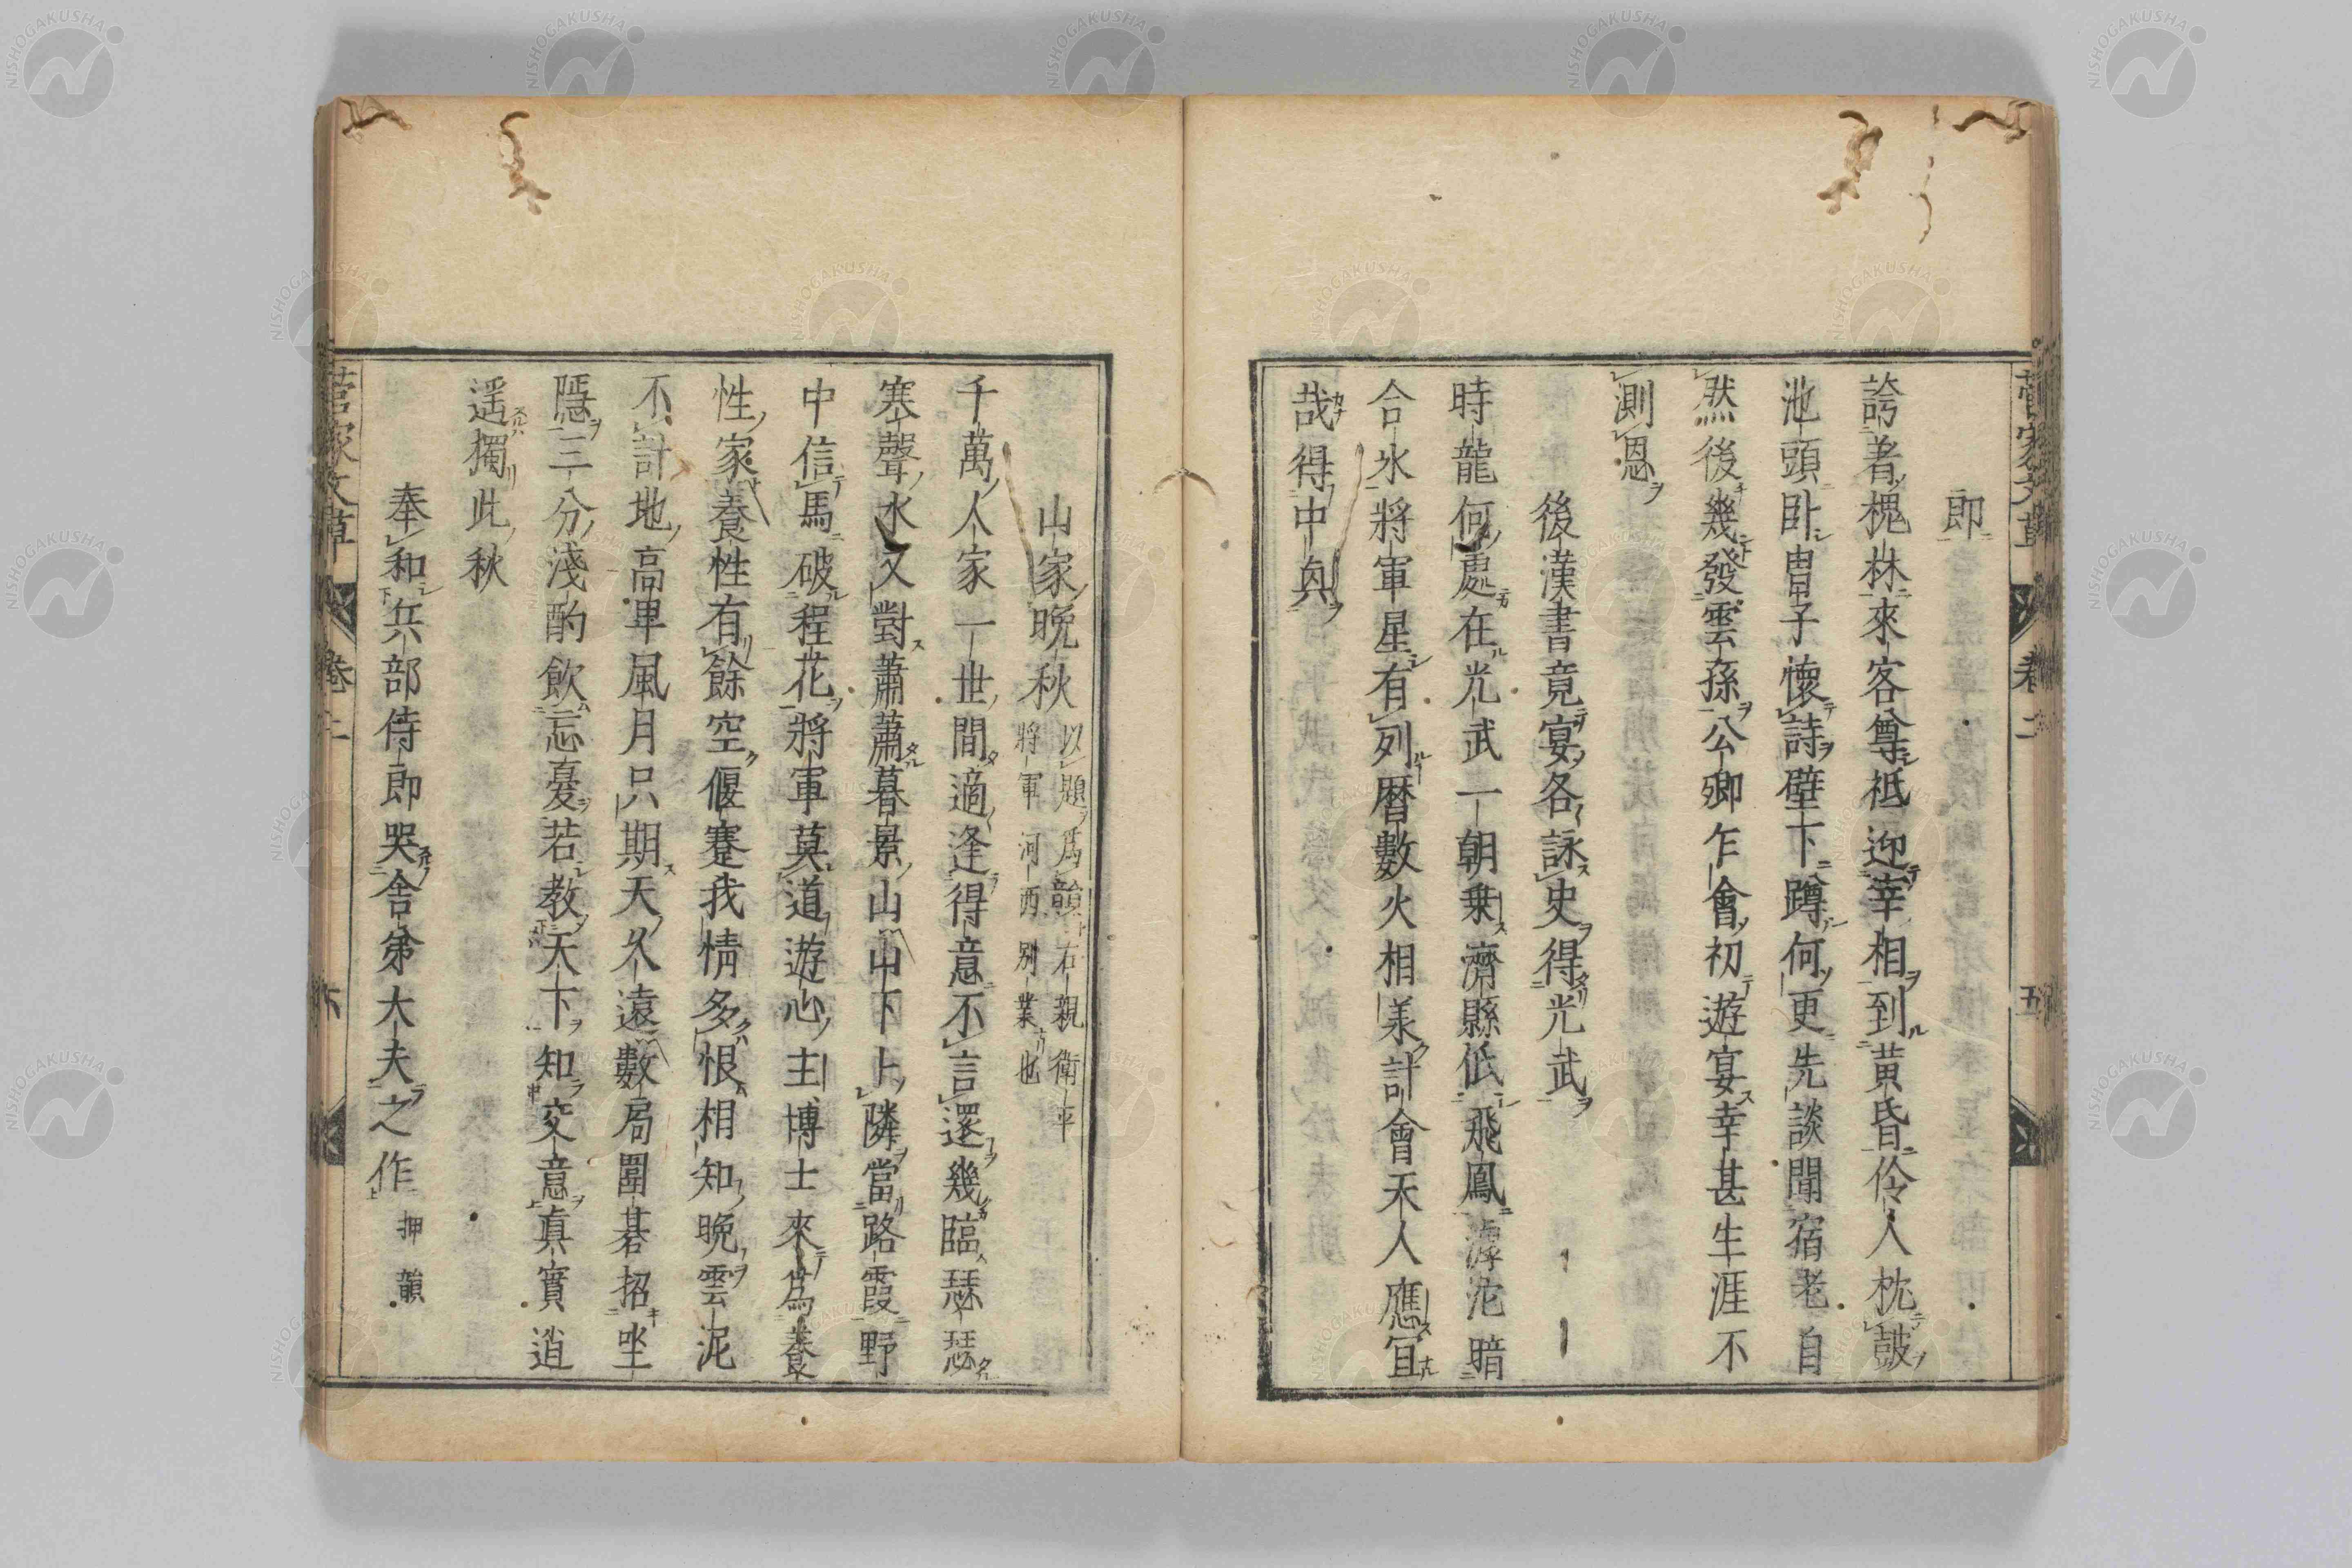 即
誇者槐林來客尊祗迎幸相到黃昏伶人枕鼓
池頭卧胄子懷詩壁下蹲何更先談聞宿老自
然後幾發雲孫公卿乍會初遊宴幸甚生涯不
測恩
後漢書竟宴各詠史得光武
時龍何處在光武一朝乗濟縣低飛鳳滹沱暗
合氷將軍星有列暦數火相羕計會天人應冝
哉得中矣
菅家文草 卷二 五
山家晩秋 以題爲韻右親衛平
將軍河西別業也
千萬人家一世間適逢得意不言還幾臨瑟瑟
寒聲水又對蕭蕭暮景山山下卜隣當路霞野
中信馬破程花將軍莫道遊心主博士來爲養
性家養性有餘空偃蹇我情多恨相知晩雲泥
不計地高卑風月只期天久遠數局圍碁招坐
隱三分淺酌飲忘憂若教天下知交意眞實逍
遥獨此秋
奉和兵部侍郎哭舎弟大夫之作 押韻
菅家文草 卷二 六
NISHOGAKUSHA